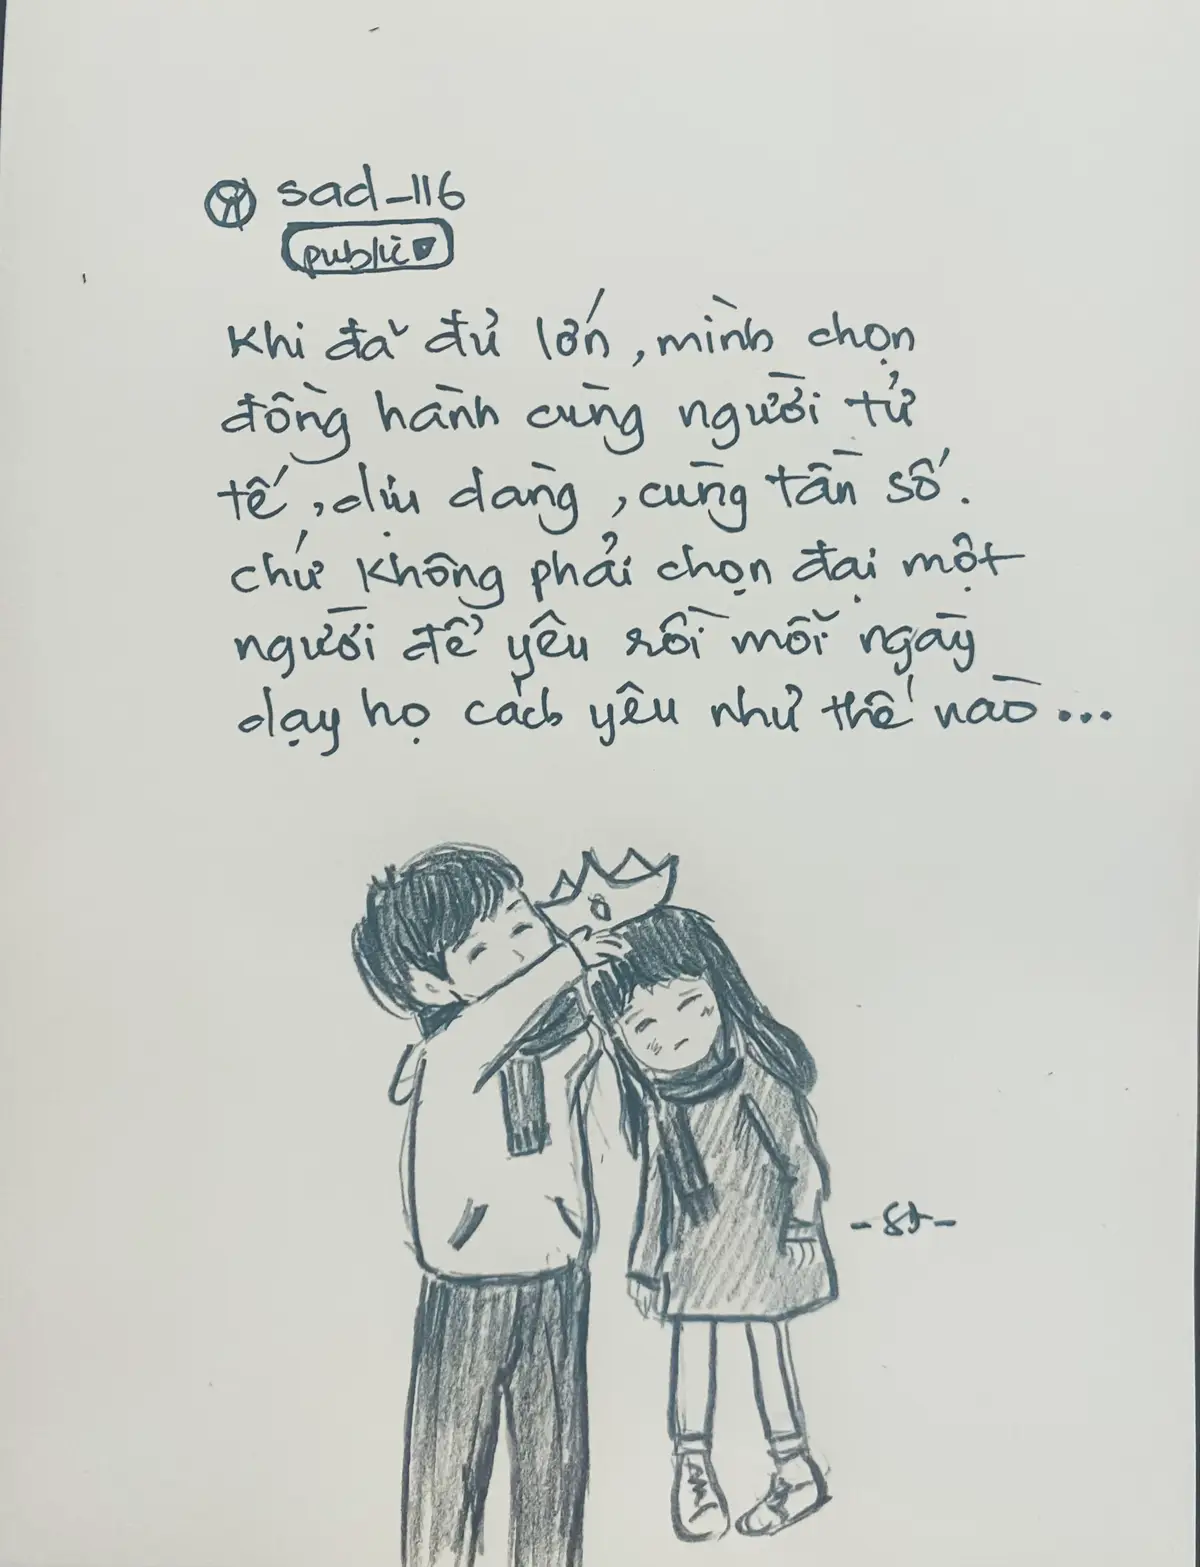 sad_116
public
Khi đã đủ lớn, mình chọn
đồng hành cùng người tử
tế, dịu dàng, cùng tần số.
chứ không phải chọn đại một
người để yêu rồi mỗi ngày
dạy họ cách yêu như thế nào...
-St-